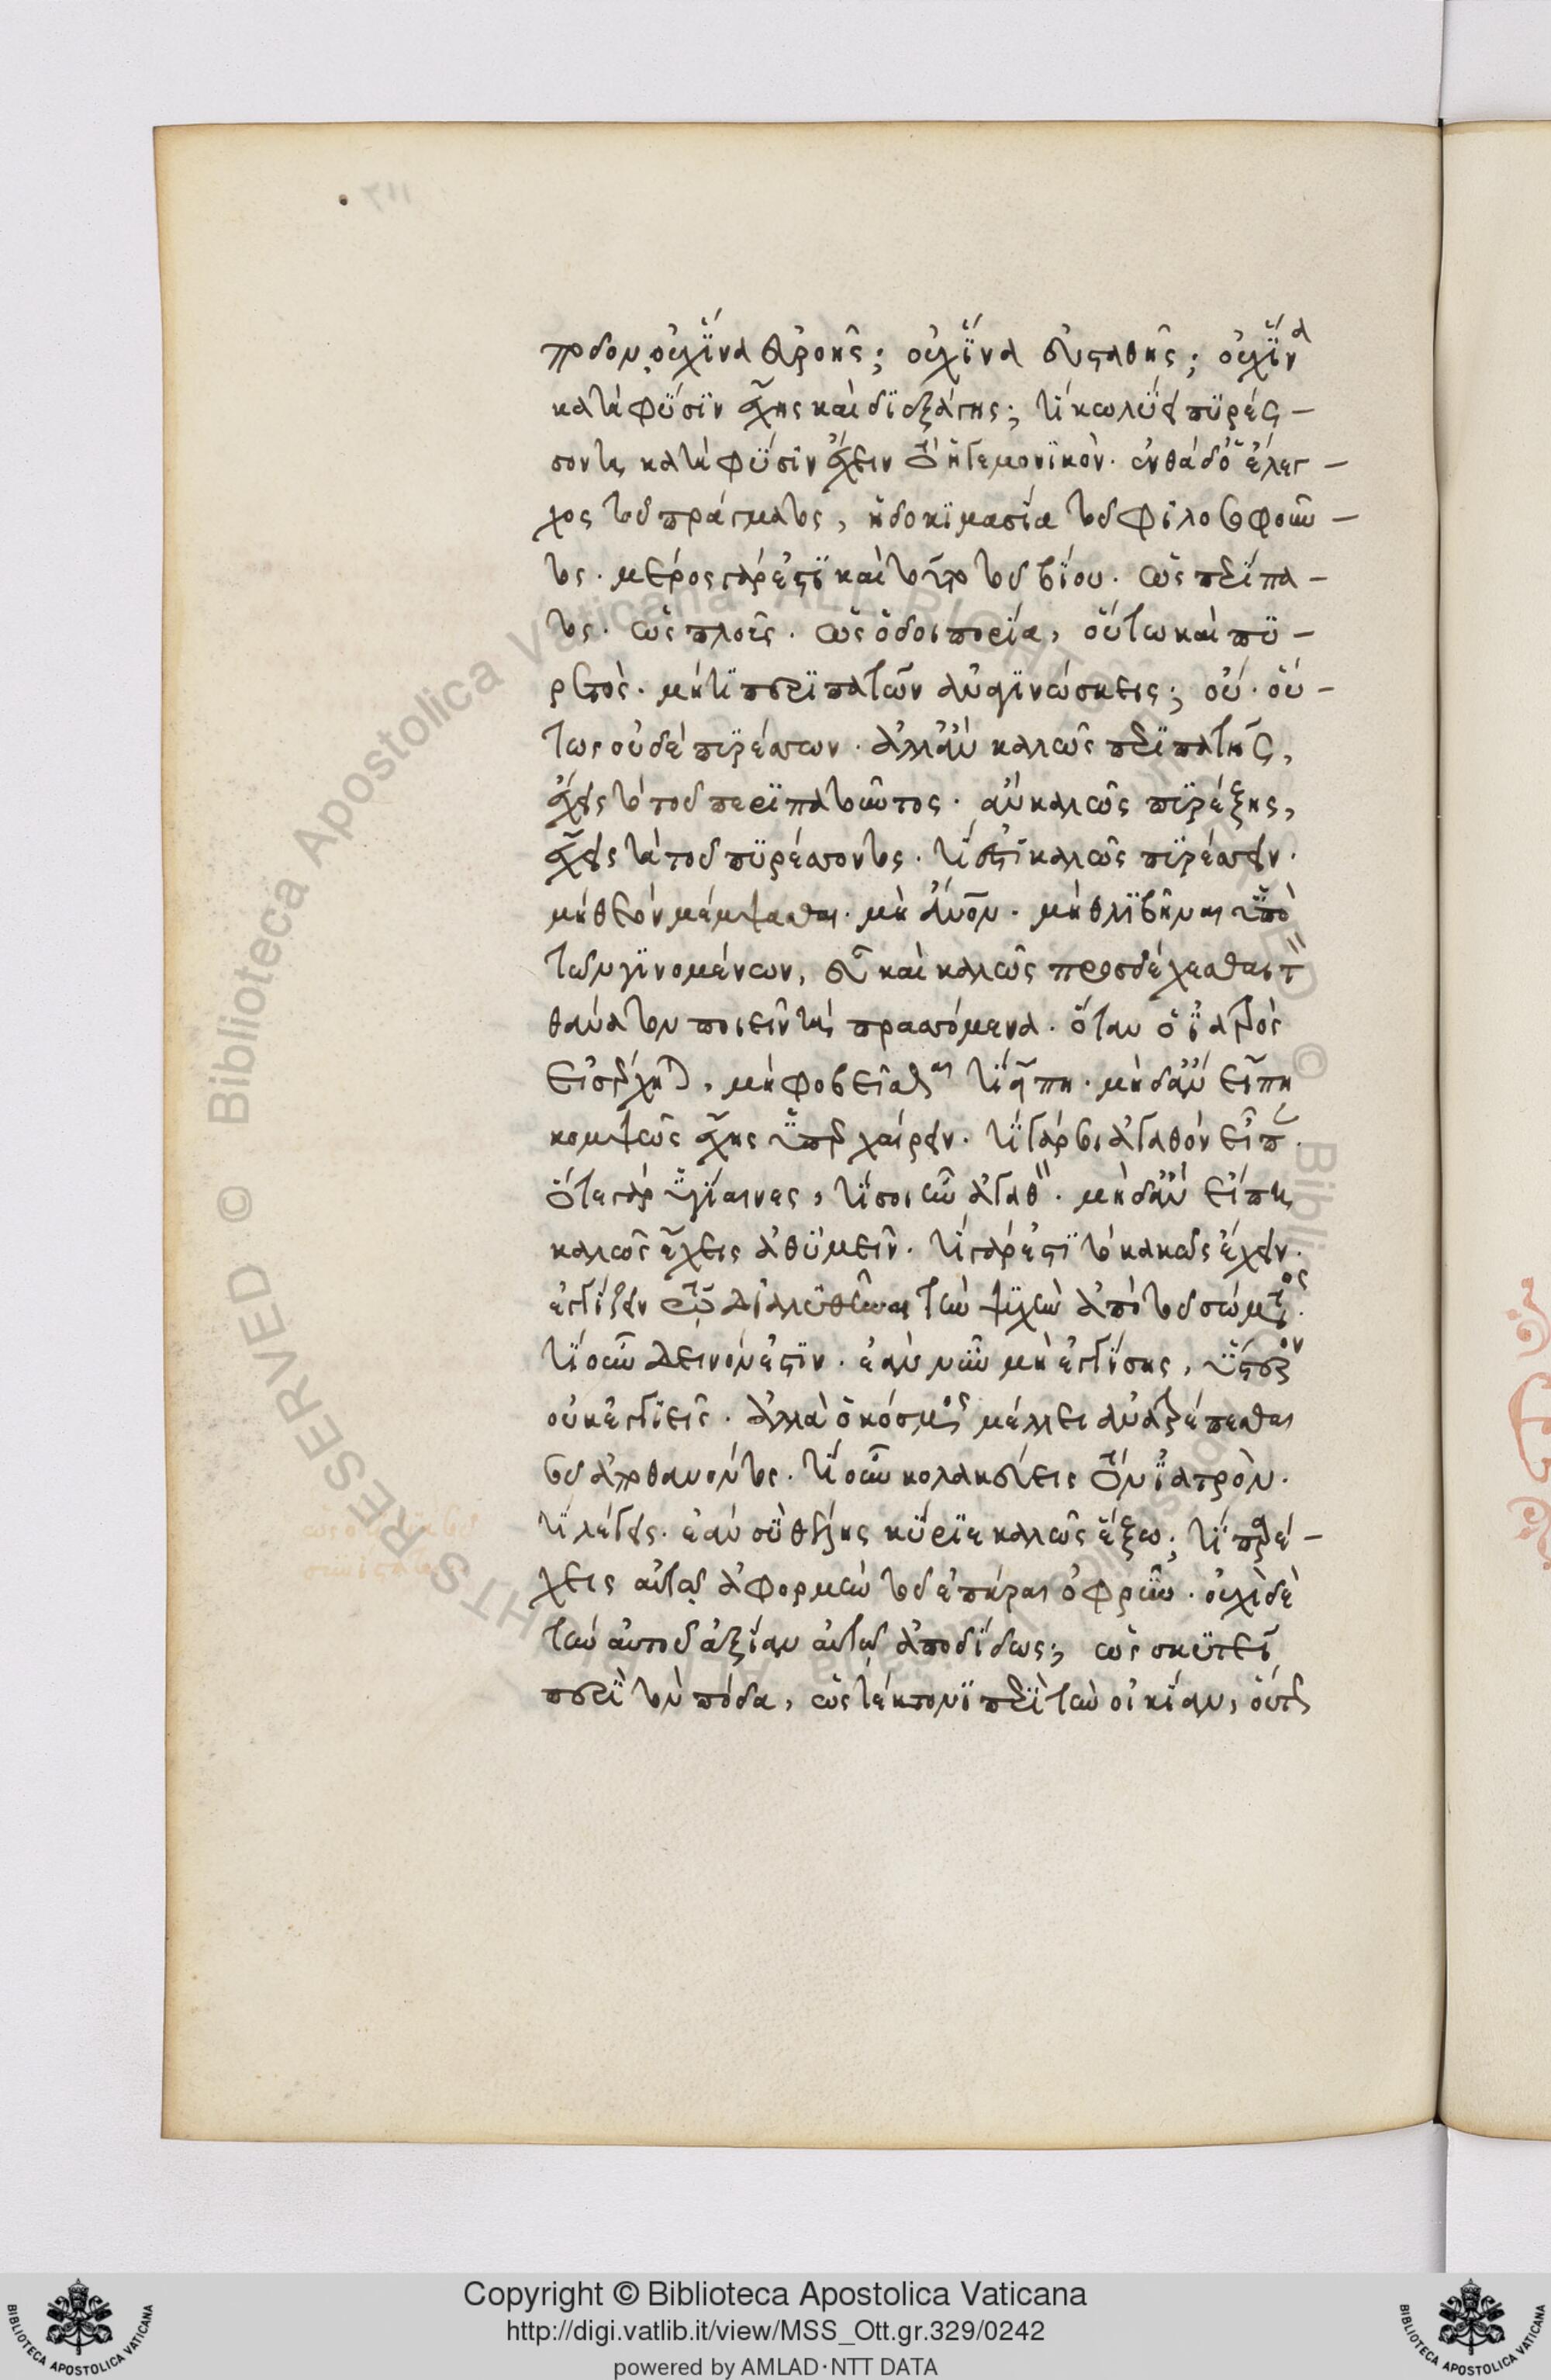 οὐχ ἵνα εὐροῇς; οὐχ ἵνα εὐσταθῇς; οὐχ ἵνα
κατὰ φύσιν ἔχης καὶ διεξάγης; τί κωλύει πυρέσ-
σοντα κατὰ φύσιν ἔχειν τὸ ἡγεμονικὸν. ἐνθάδ' ὁ ἔλεγ-
χος τοῦ πράγματος, ἡ δοκιμασία τοῦ φιλοσοφοῦν-
τος. μέρος γάρ ἐστι καὶ τοῦτο τοῦ βίου. ὡς περίπα-
τος. ὡς πλοῦς. ὡς ὁδοιπορία, οὕτω καὶ πυ-
ρετὸς. μή τι περιπατῶν ἀναγινώσκεις; οὔ. οὕ-
τως οὐδὲ πυρέσσων. ἀλλ' ἂν καλῶς περιπατῇς,
ἔχεις τὸ τοῦ περιπατοῦντος. ἂν καλῶς πυρέξης,
ἔχεις τὰ τοῦ πυρέσσοντος. τί ἐστὶ καλῶς πυρέσσειν.
μὴ θεὸν μέμψασθαι. μὴ ἄνθρωπον. μὴ θλιβῆναι ὑπὸ
τῶν γινομένων, εὖ καὶ καλῶς προσδέχεσθαι τὸν
θάνατον ποιεῖν τὰ πρασσόμενα. ὅταν ὁ ἰατρὸς
εἰσέρχηται, μὴ φοβεῖσθαι τί εἴπη. μηδ' ἂν εἴπη
κομψῶς ἔχης ὑπερχαίρειν. τί γάρ σοι ἀγαθὸν εἶπεν.
ὅτε γὰρ ὑγίαινες, τί σοι ἦν ἀγαθὸν. μηδ' ἂν εἴπη
καλῶς ἔχεις ἀθυμεῖν. τί γάρ ἐστι τὸ κακῶς ἔχειν.
ἐγγίζειν τῷ διαλυθῆναι τὴν ψυχὴν ἀπὸ τοῦ σώματος.
τί οὖν δεινόν ἐστιν. ἐὰν νῦν μὴ ἐγγίσης, ὕστερον
οὐκ ἐγγιεῖς. ἀλλὰ ὁ κόσμος μέλλει ἀνατρέπεσθαι
σοῦ ἀποθανόντος. τί οὖν κολακεύεις τὸν ἰατρὸν.
τί λέγεις. ἐὰν σὺ θέλης κύριε καλῶς ἕξω; τί παρέ-
χεις αὐτῷ ἀφορμὴν τοῦ ἐπᾶραι ὀφρῦν. οὐχὶ δὲ
τὴν αὐτοῦ ἀξίαν αὐτῷ ἀποδίδως; ὡς σκυτεῖ
περὶ τὸν πόδα, ὡς τέκτονι περὶ τὴν οἰκίαν, οὕτως
Copyright © Biblioteca Apostolica Vaticana
http://digi.vatlib.it/view/MSS_Ott.gr.329/0242
powered by AMLAD·NTT DATA